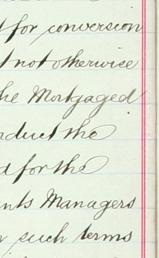 for conversion
not otherwise
the Mortgaged
conduct the
for the
Managers
such terms